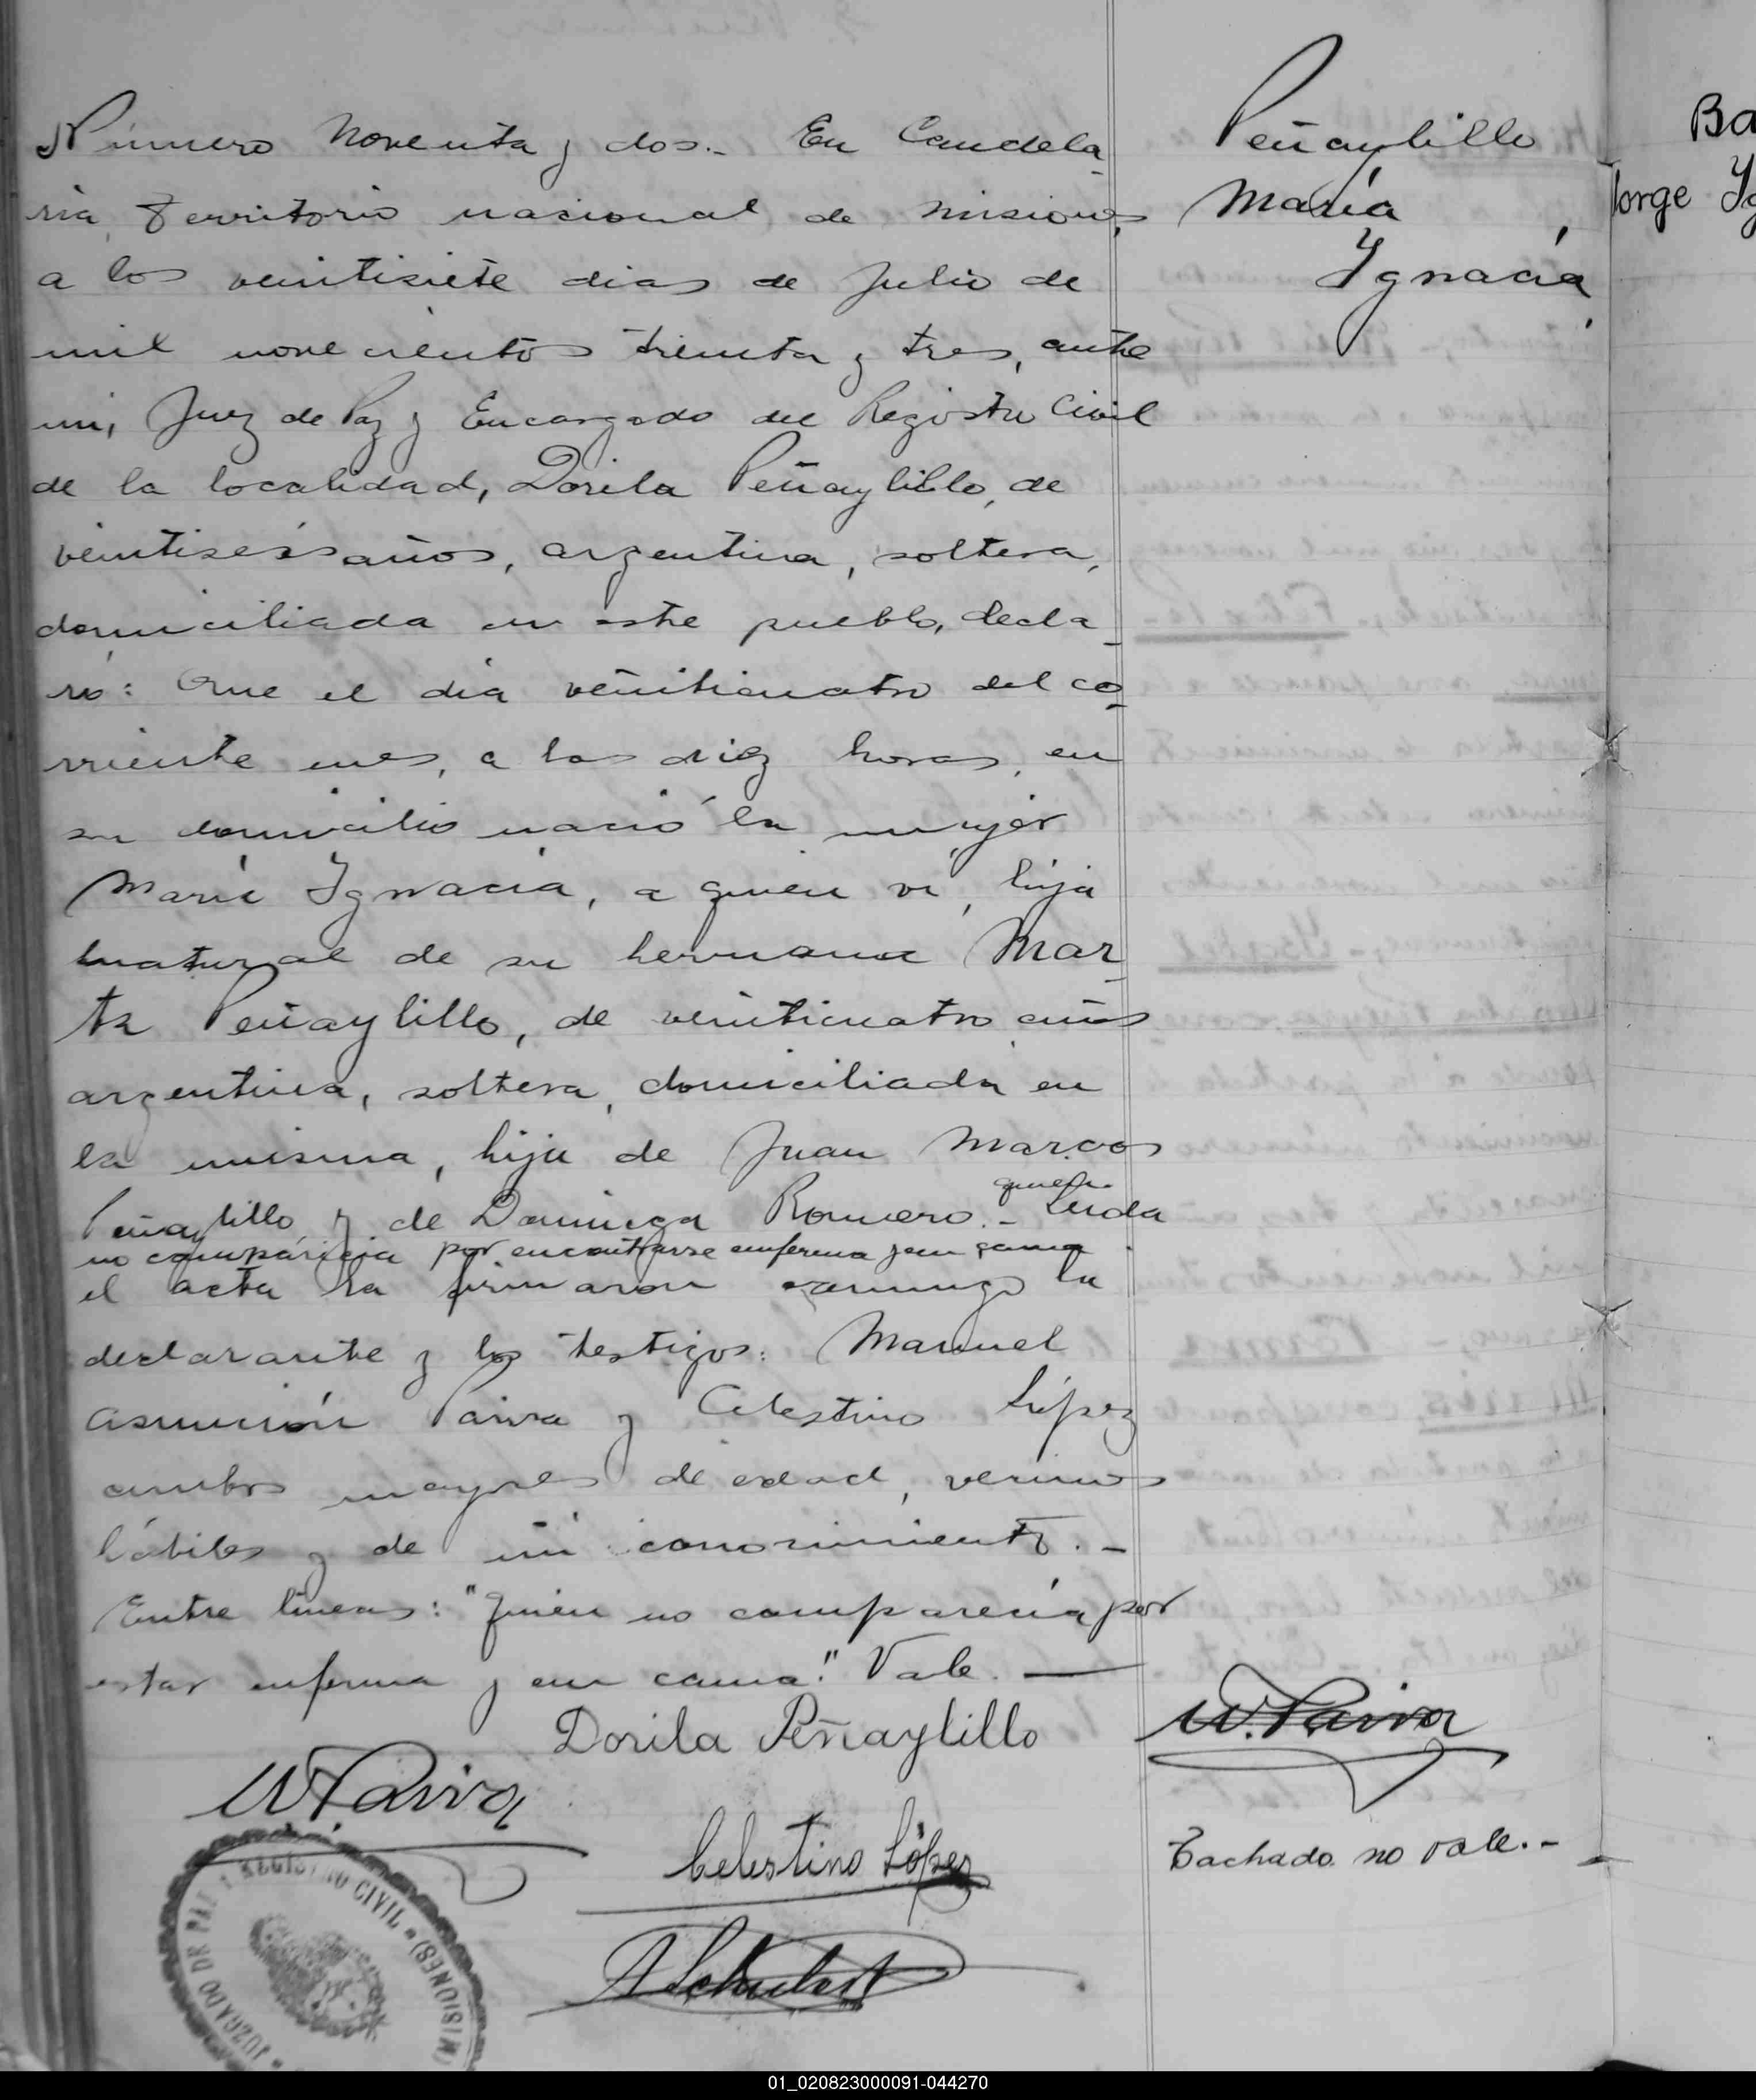 Número Noventa y dos.- En Candela-
ria, Territorio nacional de Misiones,
a los veintisiete dias de Julio de
mil novecientos treinta y tres, ante
mi, Juez de Paz y Encargado del Registro Civil
de la localidad, Dorila Peñaylillo, de
veintiseis años, argentina, soltera,
domiciliada en este pueblo, decla-
ró: Que el dia veinticuatro del co-
rriente mes, a las diez horas, en
su domicilio nació la mujer
María Ignacia, a quien ví, hija
natural de su hermana Mar-
ta Peñaylillo, de veinticuatro años
argentina, soltera, domiciliada en
la misma, hija de Juan Marcos
quien
Peñaylillo y de Dominga Romero.- Leida
no comparecia por encontrarse enferma y en cama
el acta la firmaron conmigo la
declarante y los testigos: Manuel
Asunción Paiva y Celestino López
ambos mayores de edad, vecinos
hábiles y de mi conocimiento.-
Entre lineas: "Quien no comparecía por
estar enferma y en cama". Vale.
Dorila Peñaylillo
M. Paiva
Celestino López
A Schubert
JUZGADO DE PAZ Y REGISTRO CIVIL • (MISIONES)
Peñaylillo
María
Ignacia
M. Paiva
Tachado no vale.-
Ba
Jorge Ig
01_020823000091-044270